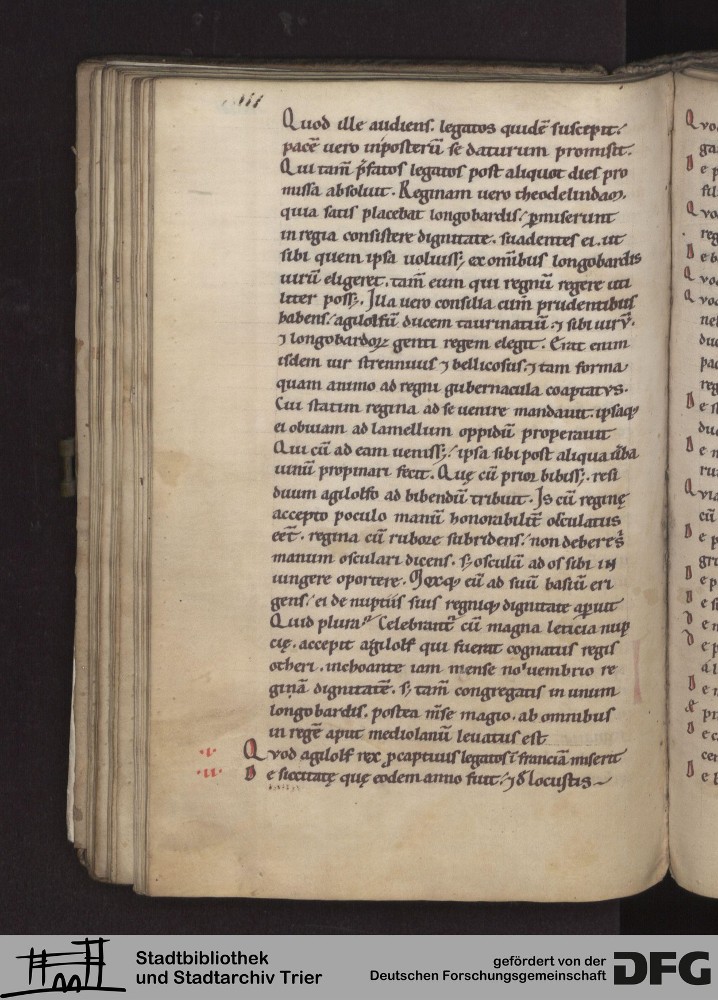 Quod ille audiens. legatos quidē suscepit.
pacē uero inposterū se daturum promisit.
Qui tam̄ p̄fatos legatos post aliquot dies pro
missa absoluit. Reginam uero theodelindam.
quia satis placebat longobardis. ꝑmiserunt
in regia consistere dignitate. suadentes ei. ut
sibi quem ipsa uoluiss; ex om̄ibus longobardis
uirū eligeret. tam̄ eum qui regnū regere uti
liter poss;. Illa uero consilia cum̄ prudentibus
habens. agilolfū ducem taurinatiū. ⁊ sibi uirū.
⁊ longobardoꝝ genti regem elegit. Erat enim
isdem uir strennuus ⁊ bellicosus. ⁊ tam forma
quam animo ad regni gubernacula coaptatus.
Cui statim regina ad se uenire mandauit. ipsaq;
ei obuiam ad lamellum oppidū properauit
Qui cū ad eam ueniss;. ipsa sibi post aliqua ūba
uinū propinari fecit. Quę cū prior bibiss;. resi
duum agilolfo ad bibendū tribuit. Is cū reginę
accepto poculo manū honorabilit̄ osculatus
eēt. regina cū rubore subridens. non debere s̄
manum osculari dicens. s; osculū ad os sibi in
iungere oporteret. Moxq; eū ad suū basiū eri
gens. ei de nuptiis suis regniq; dignitate aperuit
Quid plura? Celebrant̄ cū magna leticia nup
cię. accepit agilolf qui fuerat cognatus regis
otheri. inchoante iam mense nouembrio re
ginā dignitatē. s; tam̄ congregatis in unum
longobardis. postea m̄se magio. ab omnibus
in regē aput mediolanū leuatus est
.i. Quod agilolf rex ꝓ captiuis legatos ī franciā miserit
.ii. De siccitate quę eodem anno fuit. ⁊ d̄ locustis
Stadtbibliothek
und Stadtarchiv Trier
gefördert von der
Deutschen Forschungsgemeinschaft
DFG